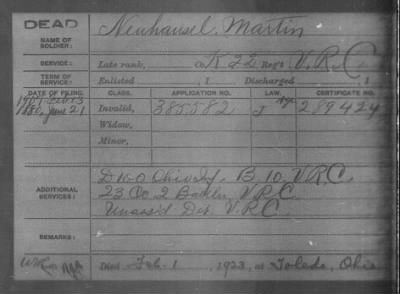 DEAD
NAME OF SOLDIER: Neuhausel, Martin
SERVICE: Late rank, Co. K 22 Reg't V.R.C.
TERM OF SERVICE: Enlisted , 1 Discharged , 1
DATE OF FILING. CLASS. APPLICATION NO. CERTIFICATE NO.
1880, June 21 Invalid, 385,582 289424
Widow,
Minor,
ADDITIONAL SERVICES: B 10 V.R.C.
23 Co 2 Battn V.R.C.
Unass'd Det V.R.C.
REMARKS:
Died Feb. 1, 1923, at Toledo, Ohio